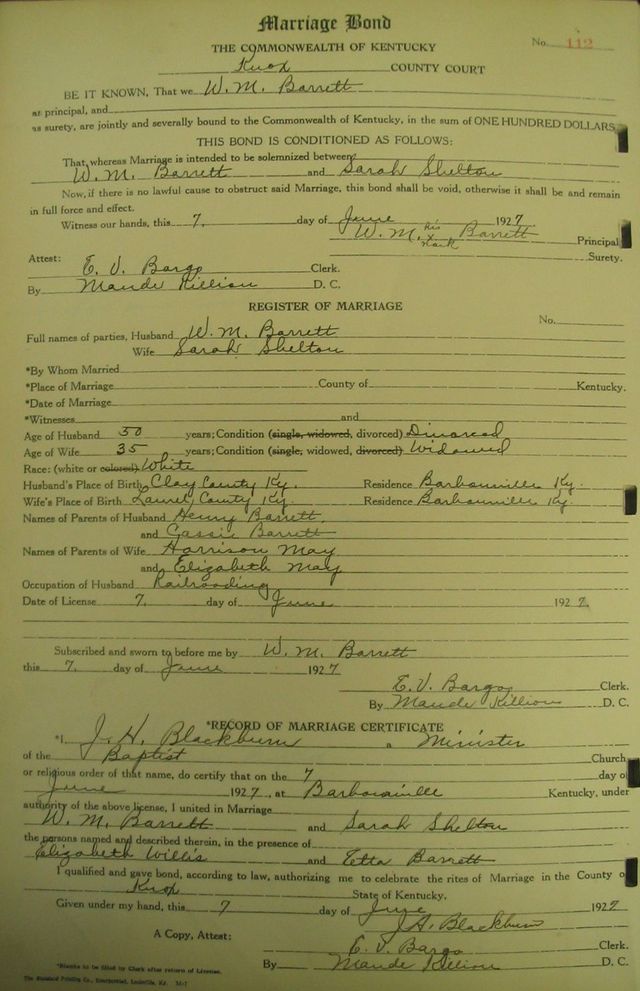 Marriage Bond
THE COMMONWEALTH OF KENTUCKY
No. 112
Knox COUNTY COURT
BE IT KNOWN, That we W. M. Barrett
as principal, and
as surety, are jointly and severally bound to the Commonwealth of Kentucky, in the sum of ONE HUNDRED DOLLARS
THIS BOND IS CONDITIONED AS FOLLOWS:
That whereas Marriage is intended to be solemnized between
W. M. Barrett and Sarah Shelton
Now, if there is no lawful cause to obstruct said Marriage, this bond shall be void, otherwise it shall be and remain
in full force and effect.
Witness our hands, this 7. day of June 1927
W. M. his x mark Barrett Principal
Surety.
Attest:
E. V. Bargo Clerk.
By Maude Killion D. C.
REGISTER OF MARRIAGE
No.
Full names of parties, Husband W. M. Barrett
Wife Sarah Shelton
*By Whom Married
*Place of Marriage County of Kentucky.
*Date of Marriage
*Witnesses and
Age of Husband 50 years; Condition (single, widowed, divorced) Divorced
Age of Wife 35 years; Condition (single, widowed, divorced) Widowed
Race: (white or colored) White
Husband's Place of Birth Clay County Ky. Residence Barbourville Ky.
Wife's Place of Birth Laurel County Ky. Residence Barbourville Ky.
Names of Parents of Husband Henry Barrett
and Cassie Barrett
Names of Parents of Wife Harrison May
and Elizabeth May
Occupation of Husband Railroading
Date of License 7. day of June 1927.
Subscribed and sworn to before me by W. M. Barrett
this 7. day of June 1927
E. V. Bargo Clerk.
By Maude Killion D. C.
*RECORD OF MARRIAGE CERTIFICATE
*I J. H. Blackburn a Minister
of the Baptist Church,
or religious order of that name, do certify that on the 7 day of
June 1927, at Barbourville Kentucky, under
authority of the above license, I united in Marriage
W. M. Barrett and Sarah Shelton
the persons named and described therein, in the presence of
Elizabeth Willis and Etta Barrett
I qualified and gave bond, according to law, authorizing me to celebrate the rites of Marriage in the County o
Knox State of Kentucky.
Given under my hand, this 7 day of June 1927
J. H. Blackburn
A Copy, Attest: E. V. Bargo Clerk.
By Maude Killion D. C.
*Blanks to be filed by Clerk after return of License.
The Standard Printing Co., Incorporated, Louisville, Ky.